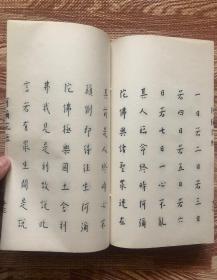 一日若二日若三日
若四日若五日若六
日若七日一心不亂
其人臨命終時阿彌
陀佛與諸聖眾現在
其前是人終時心不
顛倒即得往生阿彌
陀佛極樂國土舍利
弗我見是利故說此
言若有眾生聞是說